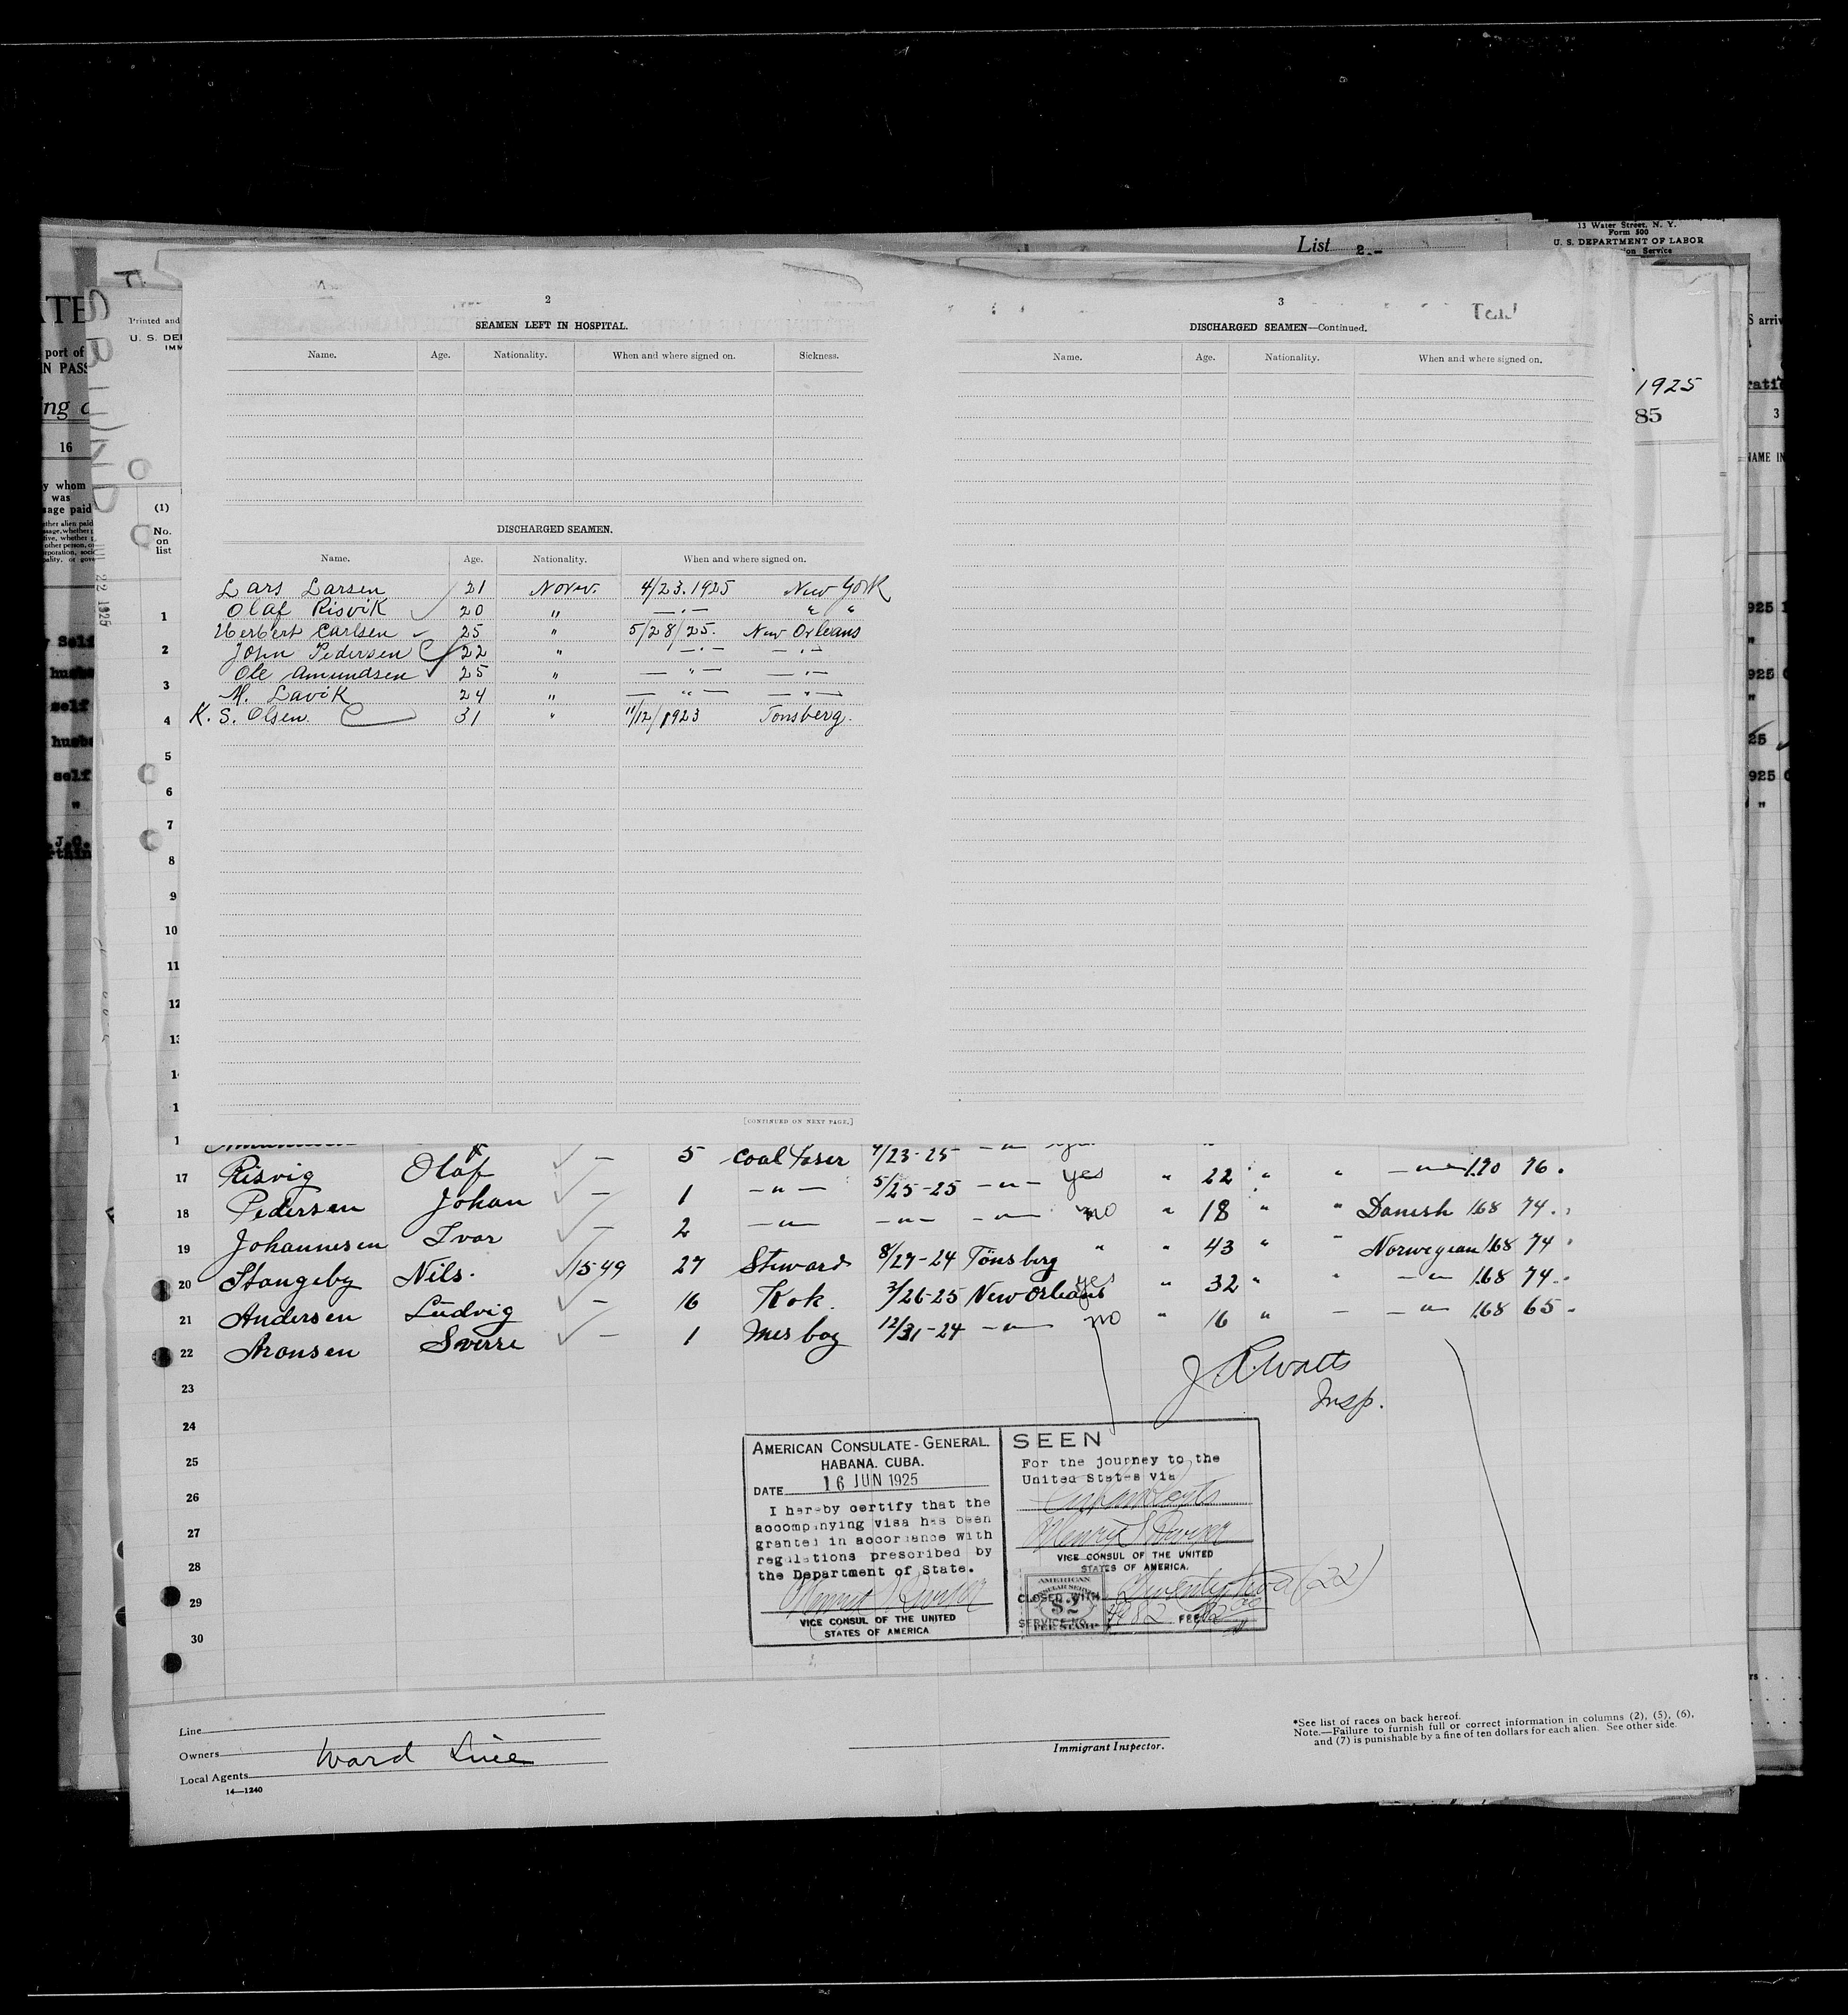 List 2.-
13 Water Street, N. Y.
Form 500
U. S. DEPARTMENT OF LABOR
2
SEAMEN LEFT IN HOSPITAL.
Name. Age. Nationality. When and where signed on. Sickness.
DISCHARGED SEAMEN.
Name. Age. Nationality. When and where signed on.
Lars Larsen 21 Norw. 4/23.1925 New York
Olaf Risvik 20 " —.— " "
Herbert Carlsen 25 " 5/28/25. New Orleans
John Pedersen 22 " —.— —.—
Ole Amundsen 25 " — " — —.—
M. Lavik 24 " — " — — " —
K. S. Olsen. 31 " 11/12/1923 Tonsberg.
[CONTINUED ON NEXT PAGE.]
3
DISCHARGED SEAMEN—Continued.
Name. Age. Nationality. When and where signed on.
1925
85
Printed and
U. S. DE
port of
16
(1)
No.
on
list
1
2
3
4
5
6
7
8
9
10
11
17 Risvig Olaf — 5 4/23-25 — " —
18 Pedersen Johan — 1 — " — 5/25-25 — " — yes " 22 " " — " — 170 76.
19 Johannesen Ivar — 2 — " — — " — — " — no " 18 " " Danish 168 74.
20 Stangeby Nils. 1549 27 Steward 8/27-24 Tönsberg " " 43 " " Norwegian 168 74
21 Andersen Ludvig — 16 Kok. 3/26-25 New Orleans yes " 32 " " — " — 168 74.
22 Aronsen Sverre — 1 Mes boy 12/31-24 — " — no " 16 " — — " — 168 65
23
24
25
26
27
28
29
30
Insp.
AMERICAN CONSULATE-GENERAL.
HABANA. CUBA.
DATE 16 JUN 1925
I hereby certify that the
accompanying visa has been
granted in accordance with
regulations prescribed by
the Department of State.
VICE CONSUL OF THE UNITED
STATES OF AMERICA
SEEN
For the journey to the
United States via
VICE CONSUL OF THE UNITED
STATES OF AMERICA.
Twenty two (22)
CLOSED WITH
SERVICE NO. FEE
AMERICAN
$2
FEE STAMP
Line
Owners
Local Agents Ward Line
14—1240
Immigrant Inspector.
*See list of races on back hereof.
Note.—Failure to furnish full or correct information in columns (2), (5), (6),
and (7) is punishable by a fine of ten dollars for each alien. See other side.